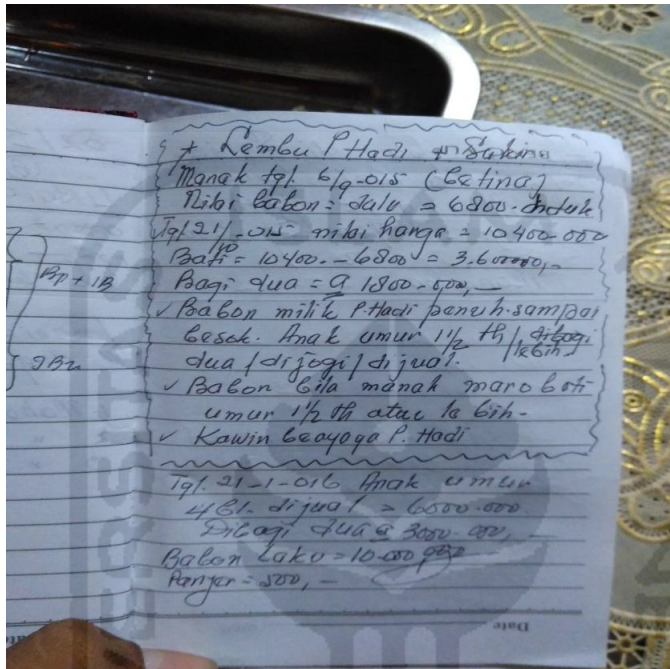 * Lembu P Hadi
Manak tgl. 6/9-015 (betina)
Nilai babon = dulu = 6800. Induk
Tgl 21/10-015 nilai harga = 10400-000
Bati = 10400.-6800 = 3.600000,-
Bagi dua = a 1800-000,-
✓ Babon milik P. Hadi penuh. sampai
besok. Anak umur 1 1/2 th / lebih dibagi
dua / dijogi / dijual.
✓ Babon bila manak maro bati
umur 1 1/2 th atau lebih-
✓ Kawin beayaga P. Hadi
Tgl. 21-1-016 Anak umur
4 bl. dijual = 6000.000
Dibagi dua a 3000-000,-
Babon Laku = 10.000,000
Panjer = 500,-
Bp + IB
2Bu
Date